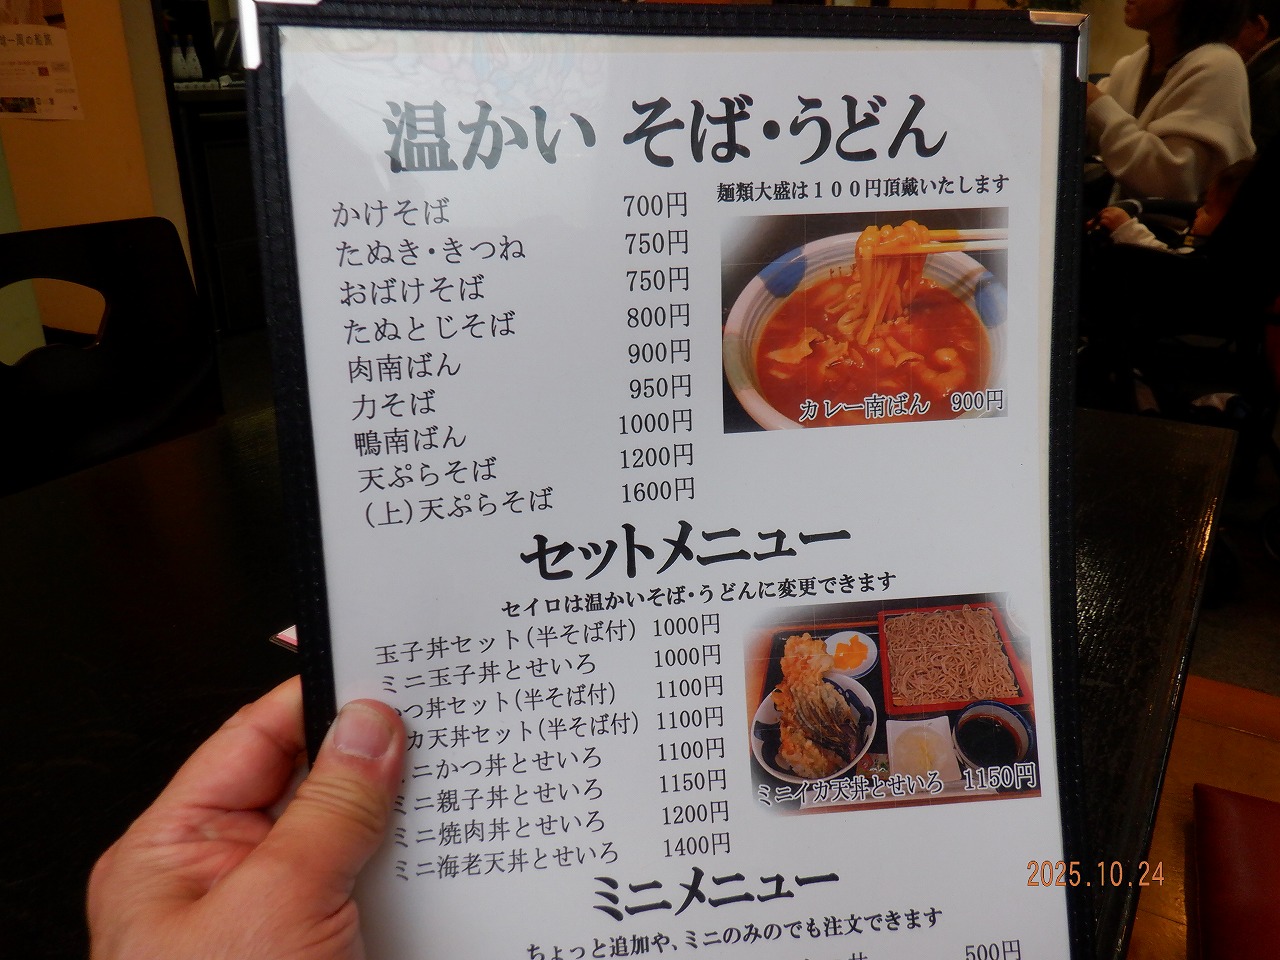 温かい そば・うどん
麺類大盛は１００円頂戴いたします
かけそば 700円
たぬき・きつね 750円
おばけそば 750円
たぬとじそば 800円
肉南ばん 900円
力そば 950円
鴨南ばん 1000円
天ぷらそば 1200円
(上)天ぷらそば 1600円
カレー南ばん 900円
セットメニュー
セイロは温かいそば・うどんに変更できます
玉子丼セット(半そば付) 1000円
ミニ玉子丼とせいろ 1000円
つ丼セット(半そば付) 1100円
カ天丼セット(半そば付) 1100円
ニかつ丼とせいろ 1100円
ミニ親子丼とせいろ 1150円
ミニ焼肉丼とせいろ 1200円
ミニ海老天丼とせいろ 1400円
ミニイカ天丼とせいろ 1150円
ミニメニュー
ちょっと追加や、ミニのみのでも注文できます
500円
2025.10.24